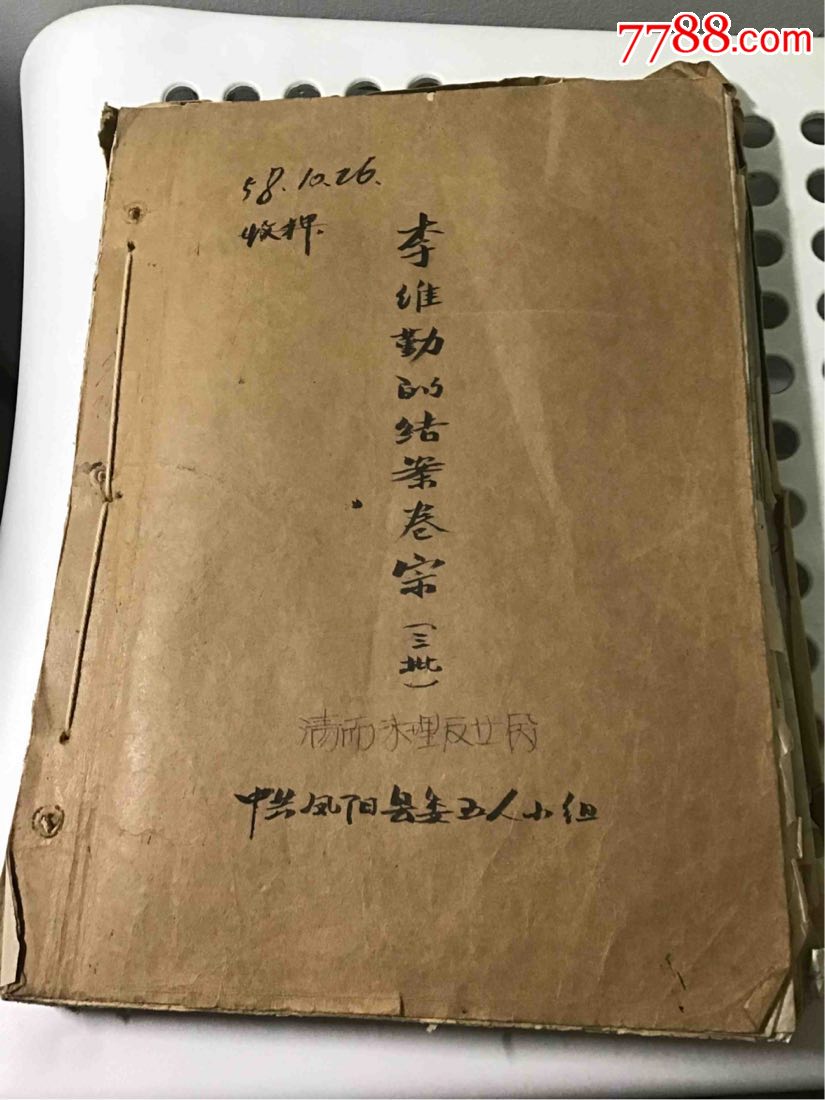 7788.com
58.10.26.
收押.
李维勤的结案卷宗(三批)
清而未理反廿段
中共凤阳县委五人小组